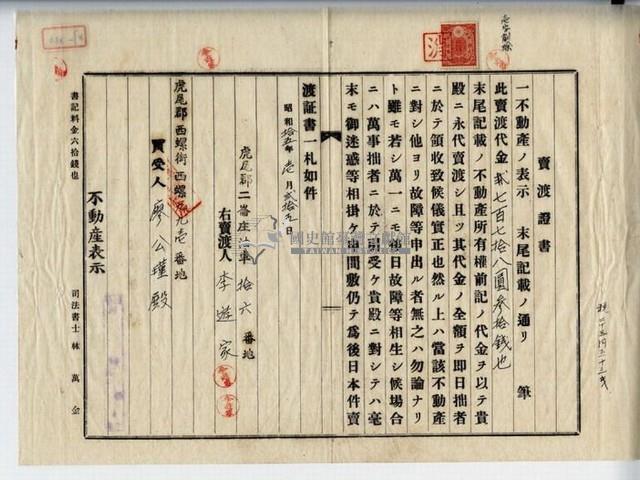 賣渡證書
一不動産ノ表示 末尾記載ノ通リ 筆
此賣渡代金貳七百七拾八圓參拾錢也
末尾記載ノ不動産所有權前記ノ代金ヲ以テ貴
殿ニ永代賣渡シ且ツ其代金ノ全額ヲ即日拙者
ニ於テ領收致候儀實正也然ル上ハ當該不動産
ニ對シ他ヨリ故障等申出ル者無之ハ勿論ナリ
ト雖モ若シ萬一ニモ後日故障等相生シ候場合
ニハ萬事拙者ニ於テ引受ケ貴殿ニ對シテハ毫
末モ御迷惑等相掛ケ申間敷仍テ為後日本件賣
渡証書一札如件
昭和拾五年壱月貳拾九日
虎尾郡二崙庄 拾六番地
右賣渡人 李遊家
虎尾郡西螺街西螺 壱番地
買受人 廖公瑾殿
不動産表示
書記料金六拾錢也
司法書士 林萬金
國史館臺灣文獻館